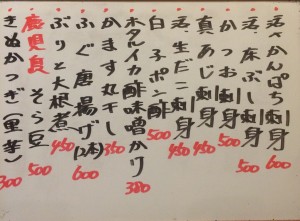 活〆かんぱち刺身 600
活、床ぶし刺身 500
かつお刺身 500
真あじ刺身 450
活、生だこ刺身 450
白子ポン酢 500
ホタルイカ酢味噌かけ 380
かます丸干し
ふぐ唐揚げ(2本) 600
ぶりと大根煮 450
鹿児島 そら豆 500
きぬかつぎ(里芋) 300